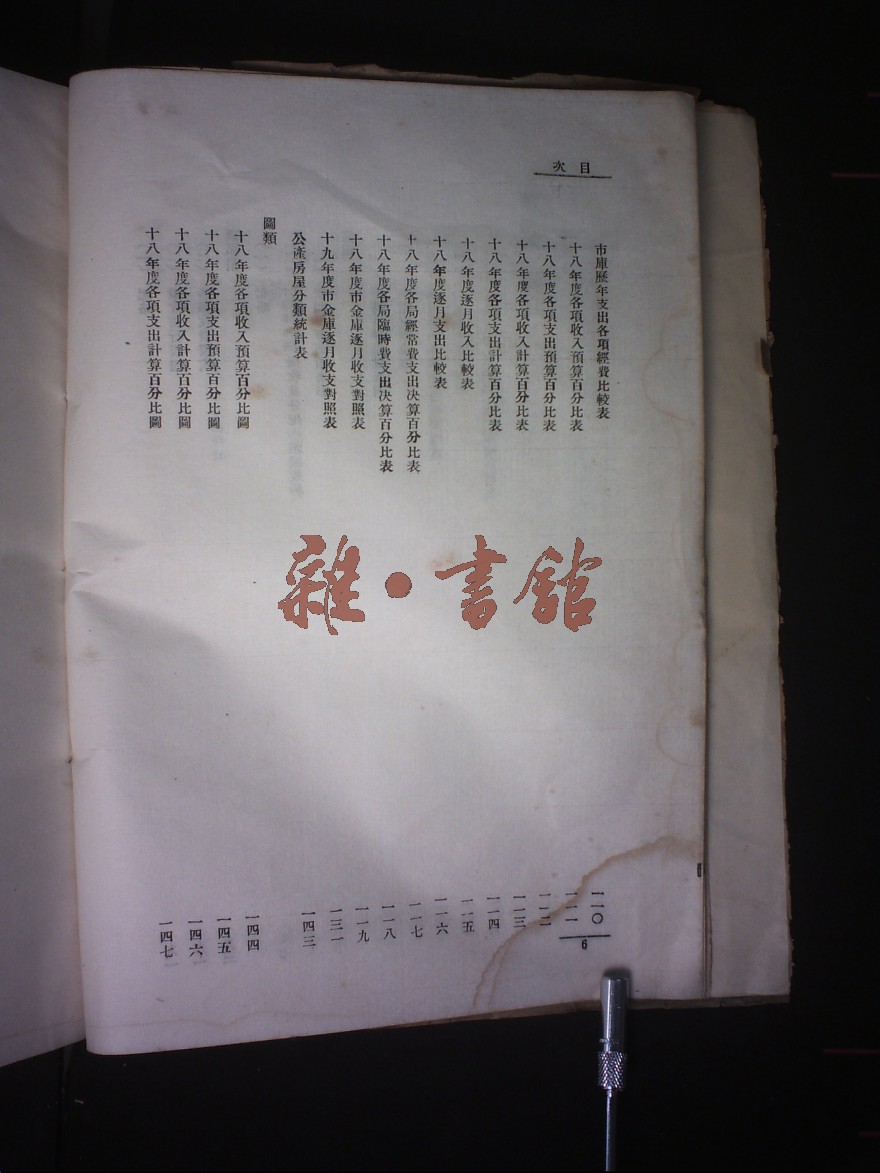 目次
市庫歷年支出各項經費比較表 一一〇
十八年度各項收入預算百分比表 一一一
十八年度各項支出預算百分比表 一一二
十八年度各項收入計算百分比表 一一三
十八年度各項支出計算百分比表 一一四
十八年度逐月收入比較表 一一五
十八年度逐月支出比較表 一一六
十八年度各局經常費支出決算百分比表 一一七
十八年度各局臨時費支出決算百分比表 一一八
十八年度市金庫逐月收支對照表 一一九
十九年度市金庫逐月收支對照表 一三一
公產房屋分類統計表 一四三
圖類
十八年度各項收入預算百分比圖 一四四
十八年度各項支出預算百分比圖 一四五
十八年度各項收入計算百分比圖 一四六
十八年度各項支出計算百分比圖 一四七
6
雜·書館